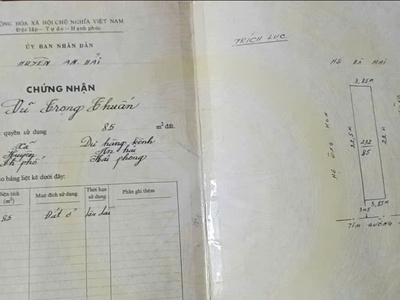 CỘNG HÒA XÃ HỘI CHỦ NGHĨA VIỆT NAM
Độc lập - Tự do - Hạnh phúc
ỦY BAN NHÂN DÂN
HUYỆN AN HẢI
CHỨNG NHẬN
Vũ Trọng Thuấn
quyền sử dụng 85 m² đất.
Xã Dư hàng Kênh
Huyện An hải
phố Hải phòng
bảng liệt kê dưới đây:
diện tích (m²) Mục đích sử dụng Thời hạn sử dụng Phần ghi thêm
85 Đất ở lâu dài
TRÍCH LỤC
HỘ BÀ MAI
3,85m
HỘ ÔNG HOA
22,5m
232
85
22m
3,85m
TIM ĐƯỜNG